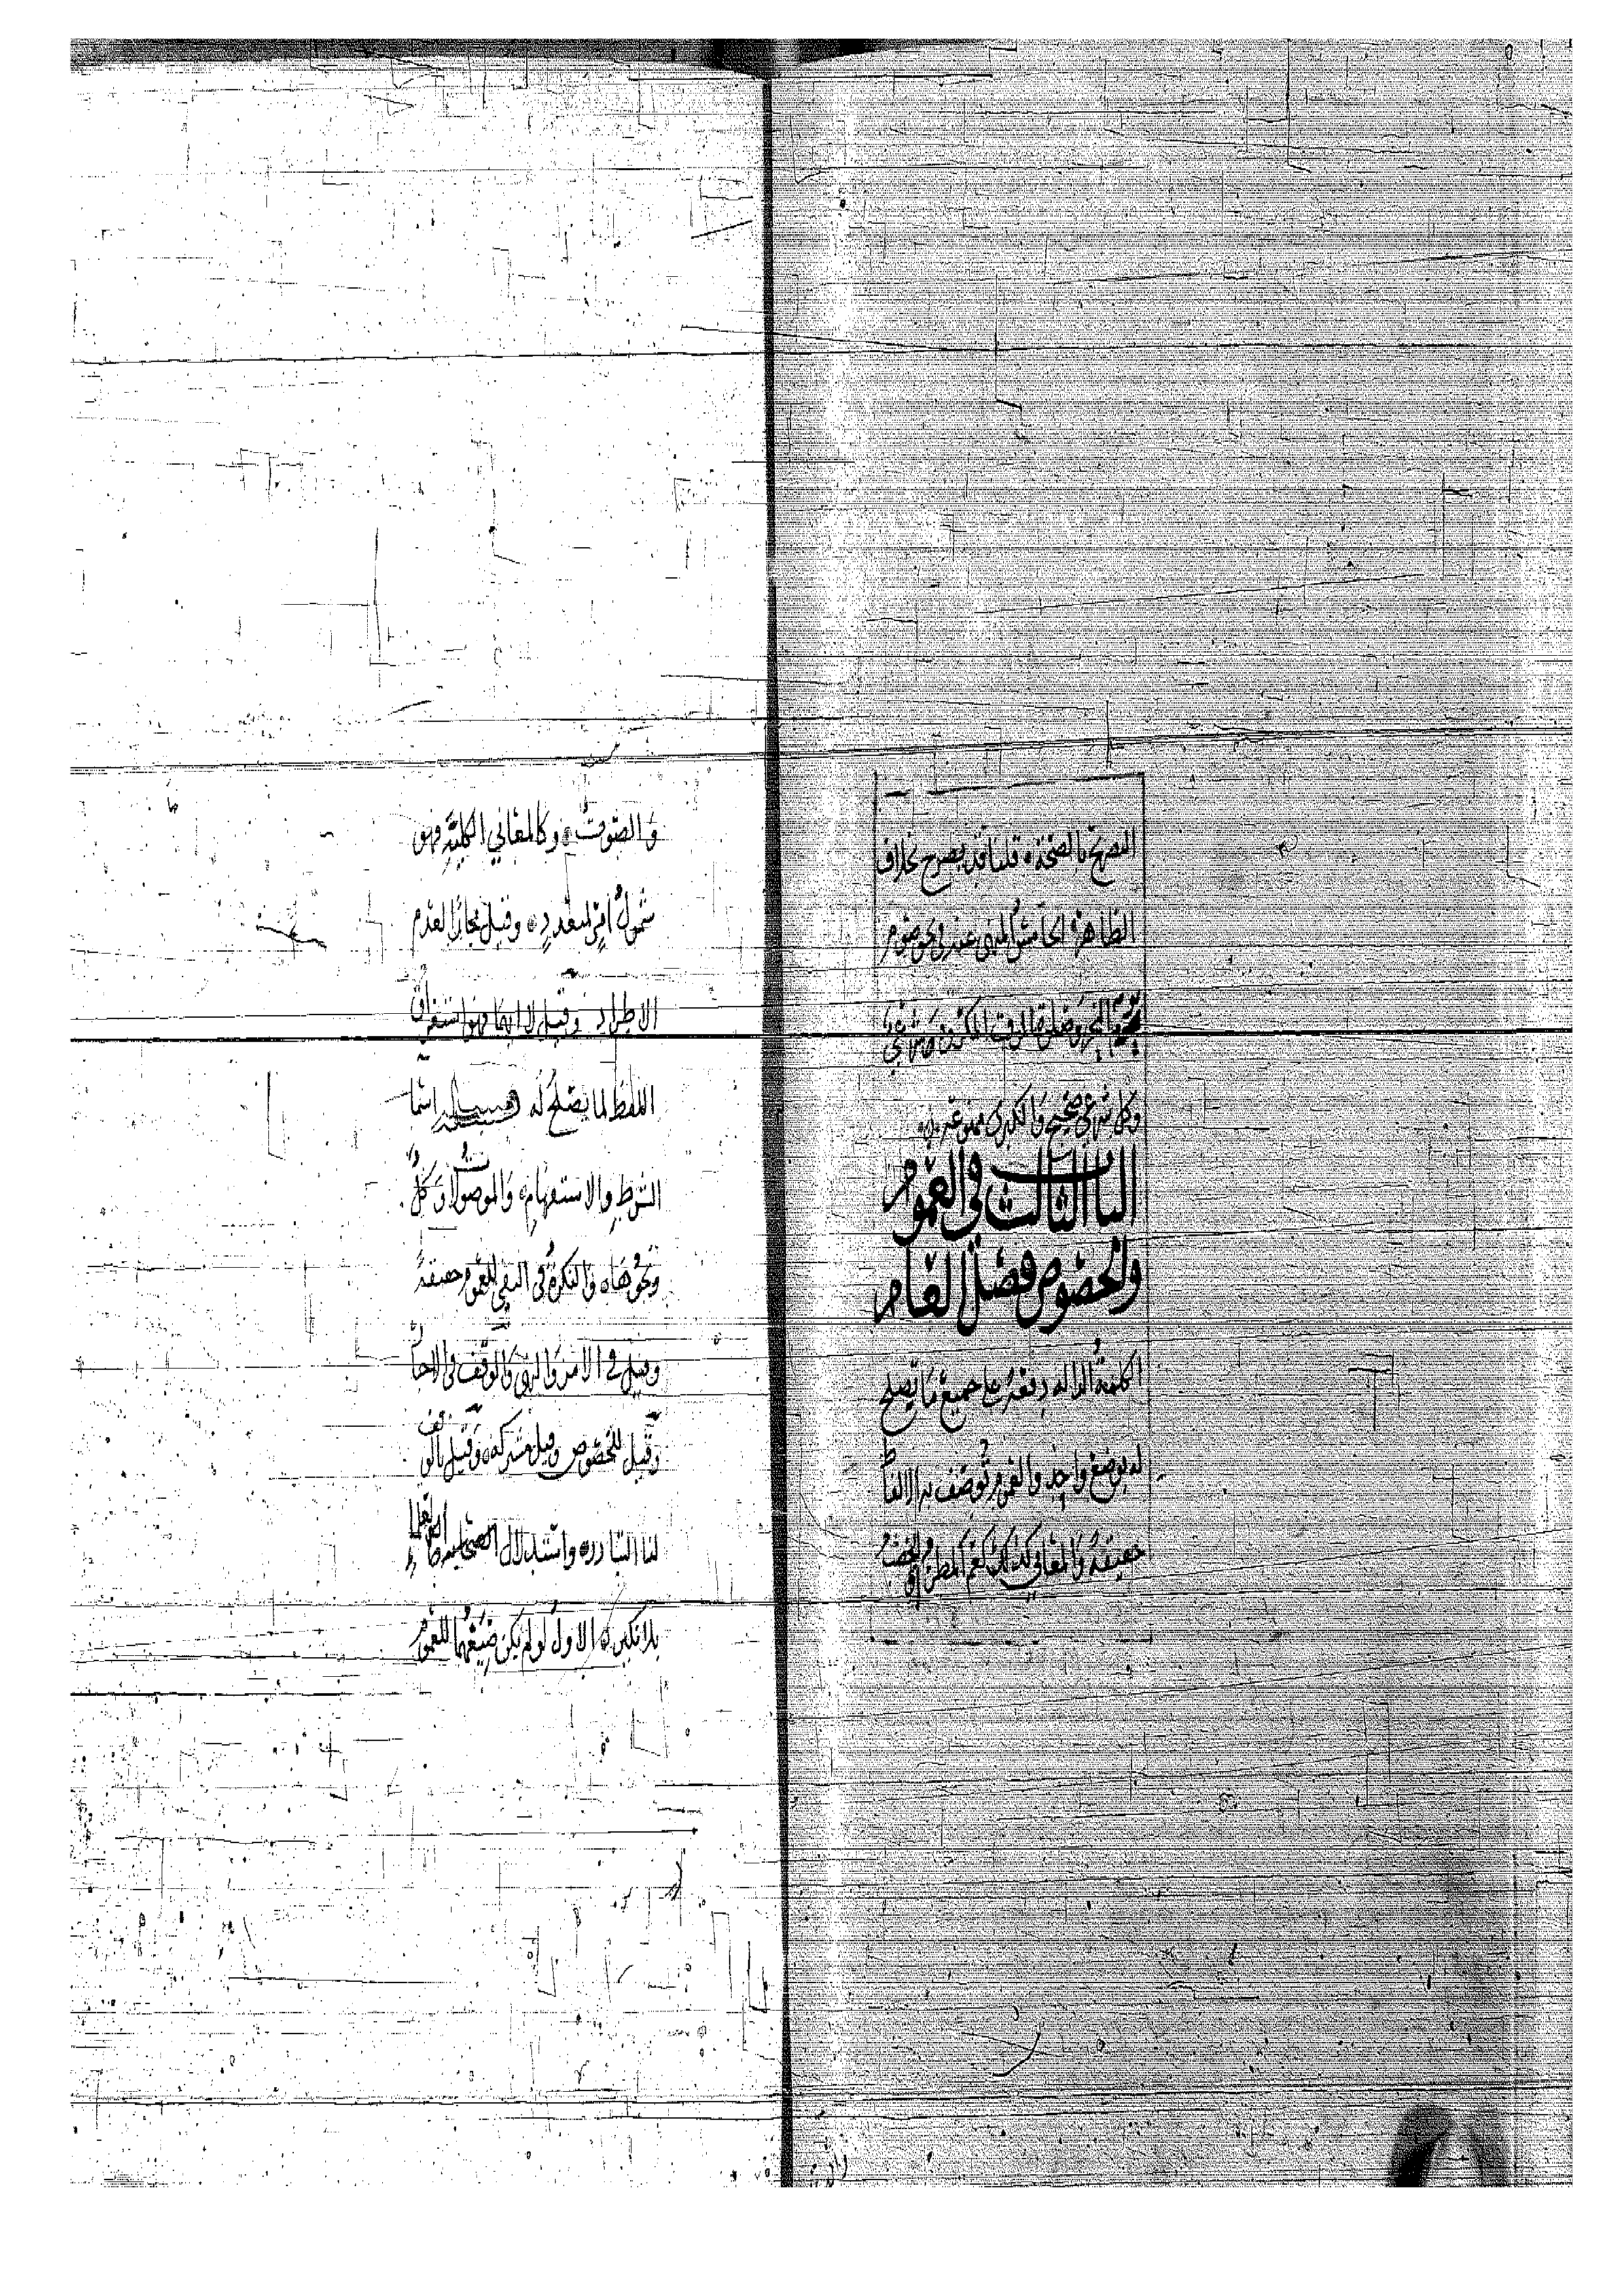 التصريح بالصحة قلنا قد يصرح بخلاف
الظاهر الخامس المنهي عنه في نحو صوم
يوم النحر وصلاة الوقت المكروه
وكل شرعي صحيح والكبرى ممنوعة
الباب الثالث في العموم
والخصوص فصل العام
الكلمة الدالة دفعة على جميع ما يصلح
له بوضع واحد والعموم توصف به الالفاظ
حقيقة والمعاني كذلك كعم المطر والخصب
والصوت وكالمعاني الكلية وهو
شمول امر لمتعدد وقيل مجازا لعدم
الاطراد وقيل لا ايهما وهو استغراق
اللفظ لما يصلح له اسما
الشرط والاستفهام والموصولات وكل
ونحوها والنكرة في النفي للعموم حقيقة
وقيل في الامر والنهي والوقف في الاخبار
وقيل للخصوص وقيل مشتركة وقيل بالوقف
لنا التبادر واستدلال العلماء
بلا نكير الاول لو لم يكن صيغها للعموم